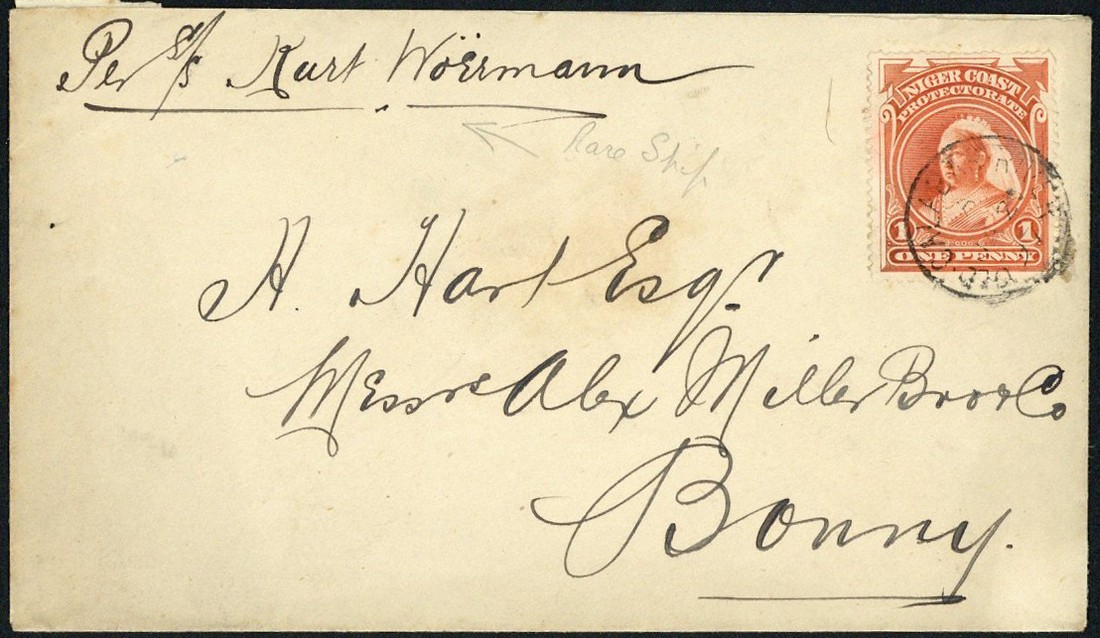 Per s/s Kurt Woërmann
Rare Ship
NIGER COAST
PROTECTORATE
1 1
ONE PENNY
OLD CALABAR
H. Hart Esqr
Messrs Alex Miller Bros & Co
Bonny.